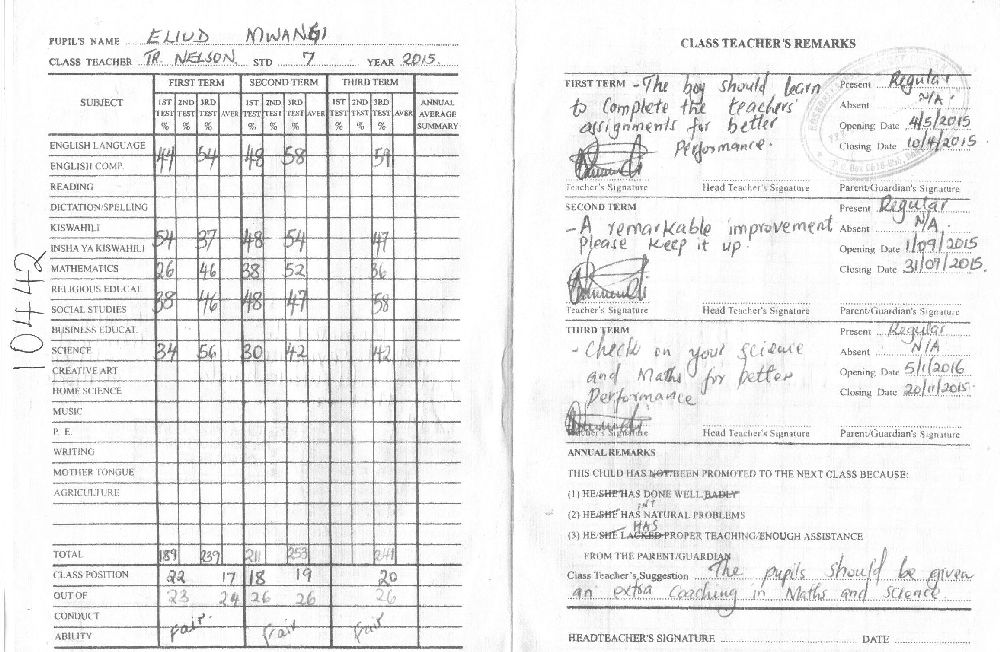 PUPIL'S NAME ELIUD MWANGI
CLASS TEACHER TR. NELSON STD 7 YEAR 2015
SUBJECT FIRST TERM SECOND TERM THIRD TERM ANNUAL AVERAGE SUMMARY
1ST TEST % 2ND TEST % 3RD TEST % AVER 1ST TEST % 2ND TEST % 3RD TEST % AVER 1ST TEST % 2ND TEST % 3RD TEST % AVER
ENGLISH LANGUAGE
44 54 48 58 59
ENGLISH COMP.
READING
DICTATION/SPELLING
KISWAHILI
54 37 48 54 47
INSHA YA KISWAHILI
MATHEMATICS 26 46 38 52 36
RELIGIOUS EDUCAT
38 46 48 47 58
SOCIAL STUDIES
BUSINESS EDUCAT.
SCIENCE 34 56 30 42 42
CREATIVE ART
HOME SCIENCE
MUSIC
P. E.
WRITING
MOTHER TONGUE
AGRICULTURE
TOTAL 189 239 211 253 241
CLASS POSITION 22 17 18 19 20
OUT OF 23 24 26 26 26
CONDUCT
Fair. Fair Fair
ABILITY
10442
CLASS TEACHER'S REMARKS
FIRST TERM - The boy should learn
to complete the teachers'
assignments for better
performance.
Present Regular
Absent N/A
Opening Date 4/5/2015
Closing Date 10/4/2015
Teacher's Signature Head Teacher's Signature Parent/Guardian's Signature
SECOND TERM
- A remarkable improvement
please keep it up.
Present Regular
Absent N/A
Opening Date 1/09/2015
Closing Date 31/07/2015
Teacher's Signature Head Teacher's Signature Parent/Guardian's Signature
THIRD TERM
- Check on your science
and Maths for better
Performance
Present Regular
Absent N/A
Opening Date 5/1/2016
Closing Date 20/11/2015
Teacher's Signature Head Teacher's Signature Parent/Guardian's Signature
ANNUAL REMARKS
THIS CHILD HAS NOT BEEN PROMOTED TO THE NEXT CLASS BECAUSE:
(1) HE/SHE HAS DONE WELL BADLY
(2) HE/SHE HAS NATURAL PROBLEMS
HAS
(3) HE/SHE LACKED PROPER TEACHING/ENOUGH ASSISTANCE
FROM THE PARENT/GUARDIAN
Class Teacher's Suggestion The pupils should be given
an extra coaching in Maths and science
HEADTEACHER'S SIGNATURE DATE